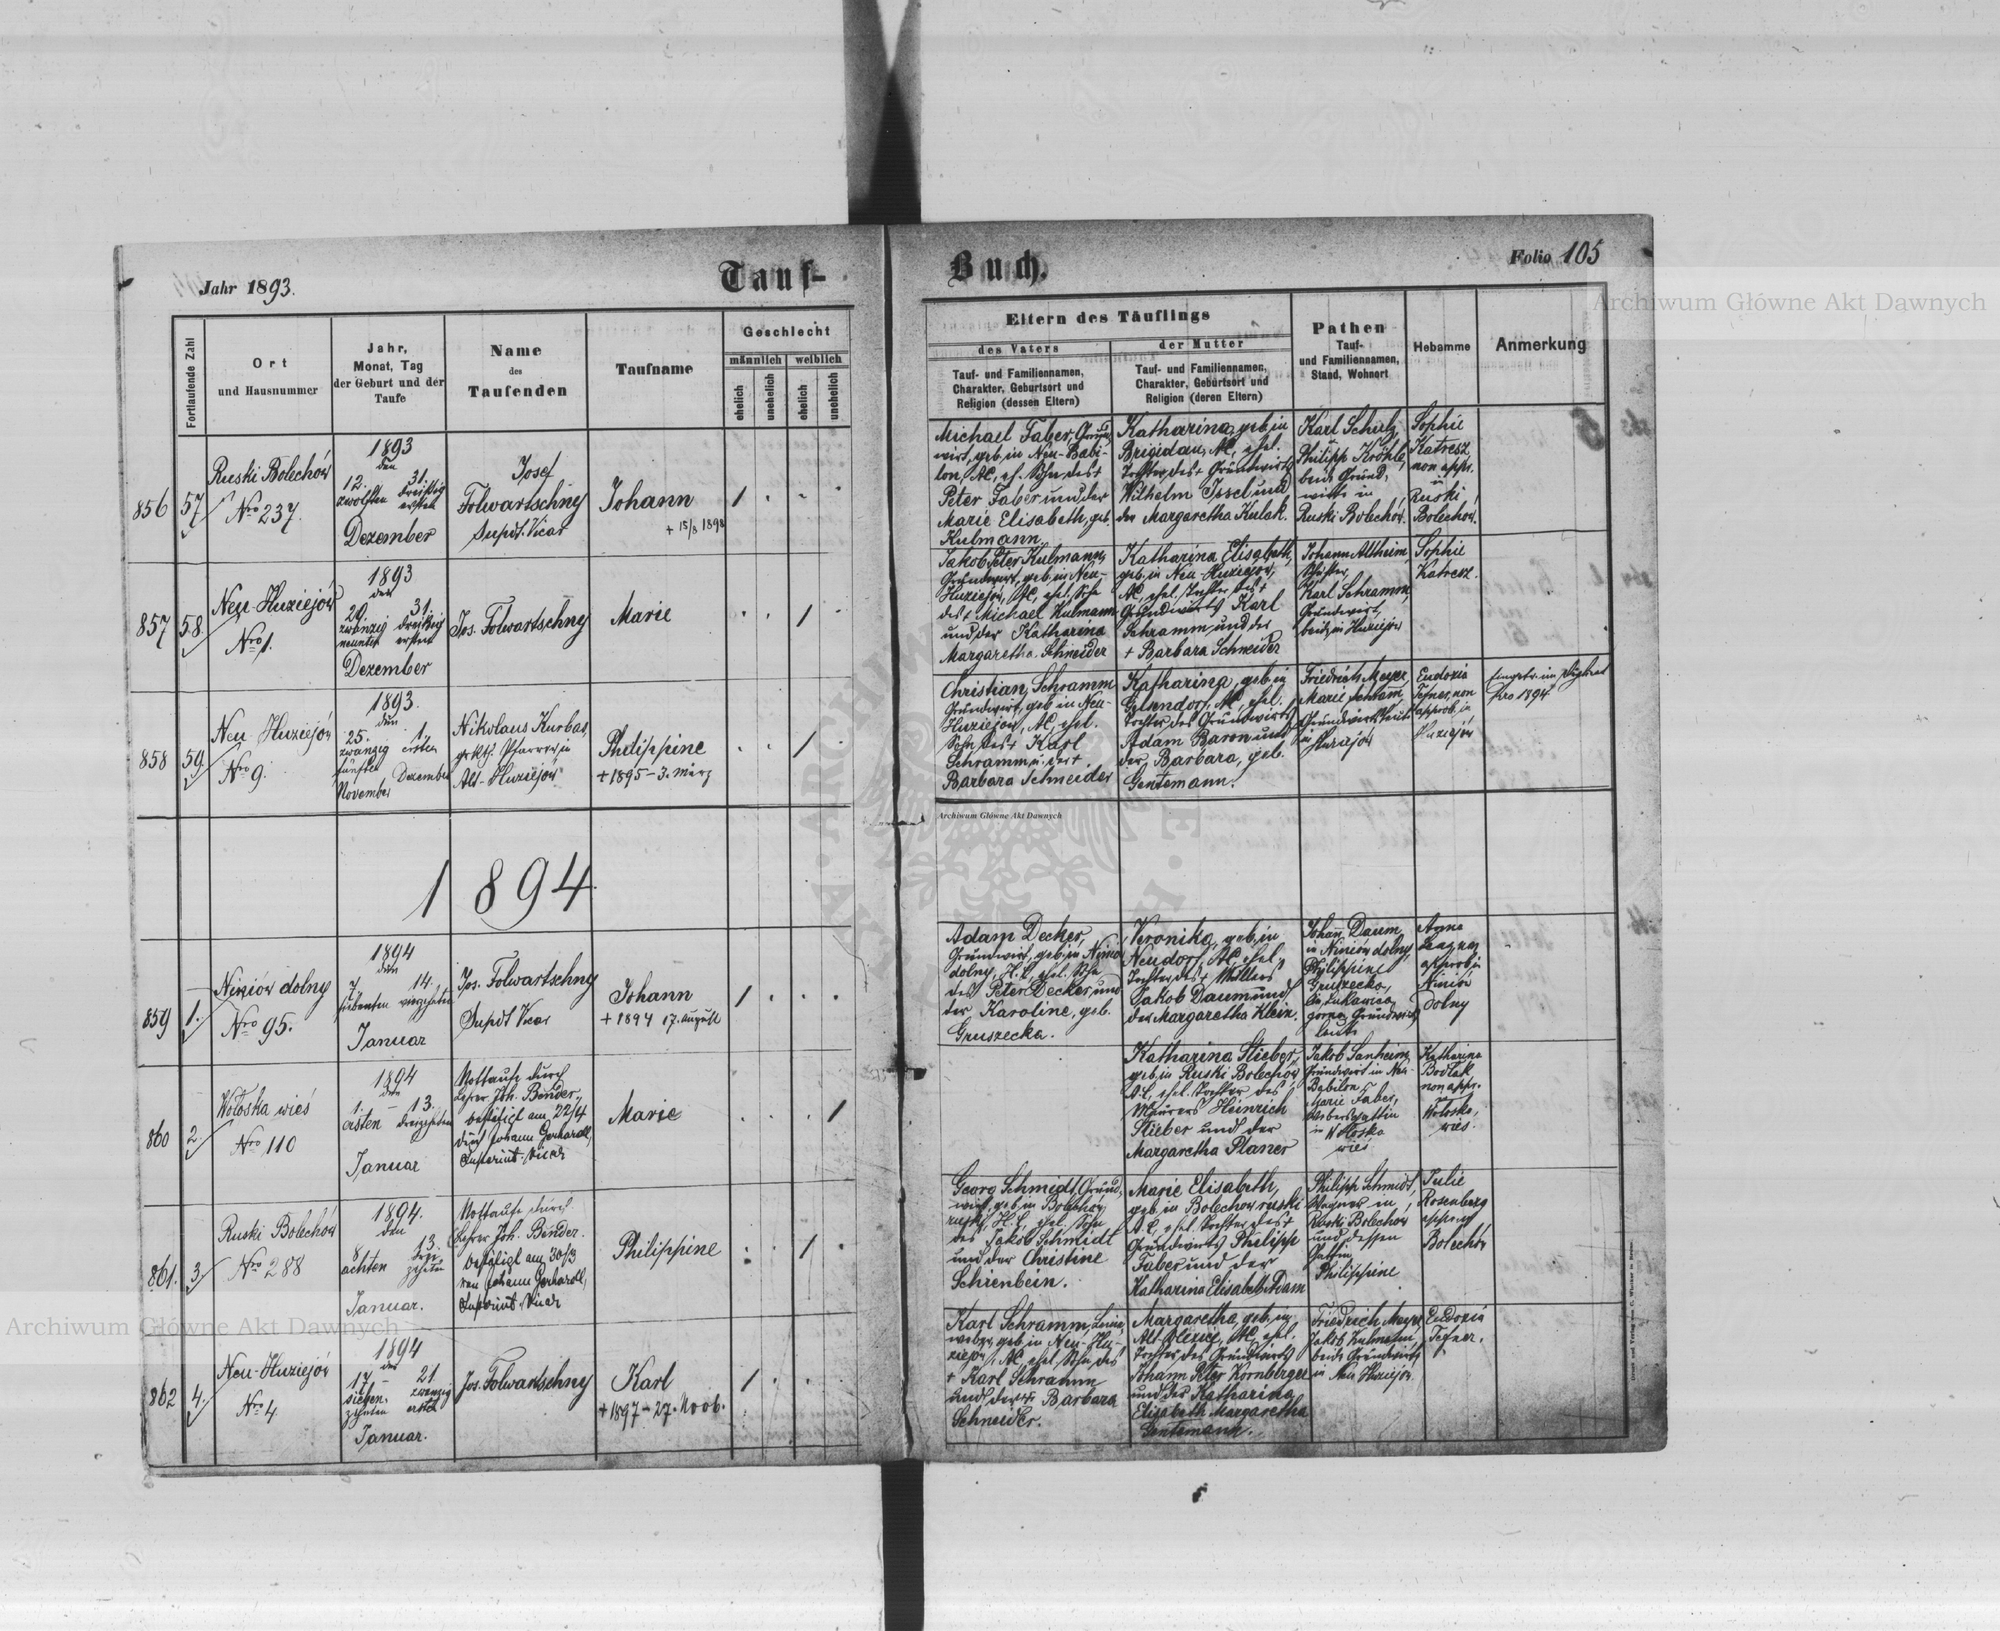 Jahr 1893.
Tauf-
Buch.
Folio 105
Fortlaufende Zahl
Ort
und Hausnummer
Jahr,
Monat, Tag
der Geburt und der
Taufe
Name
des
Taufenden
Taufname
Geschlecht
männlich
weiblich
ehelich
unehelich
ehelich
unehelich
Eltern des Täuflings
des Vaters
Tauf- und Familiennamen,
Charakter, Geburtsort und
Religion (dessen Eltern)
der Mutter
Tauf- und Familiennamen,
Charakter, Geburtsort und
Religion (deren Eltern)
Pathen
Tauf-
und Familiennamen,
Stand, Wohnort
Hebamme
Anmerkung
856
57
Ruski Bolechów
Nro 237.
1893
den
12. 31.
zwölften dreißig
ersten
Dezember
Josef
Folwartschny
Supdt. Vicar
Johann
+ 15/8 1898
1
Michael Faber, Grund-
wirt, geb. in Neu-Babi-
lon, AC, eh. Sohn des +
Peter Faber und der
Marie Elisabeth, geb.
Kulmann
Katharina, geb. in
Brigidau, AC, ehel.
Tochter des + Grundwirts
Wilhelm Issel und
der Margaretha Kulak.
Karl Schulz,
Philipp Kröhle,
beide Grund-
wirte in
Ruski Bolechów.
Sophie
Katresz
non appr.
in
Ruski
Bolechów.
857
58.
Neu-Huziejów
Nro 1.
1893
den
29. 31.
zwanzig dreißig
neunten ersten
Dezember
Jos. Folwartschny
Marie
1
Jakob Peter Kulmann,
Grundwirt, geb. in Neu-
Huziejów, AC, ehel. Sohn
des + Michael Kulmann
und der Katharina
Margaretha Schneider
Katharina Elisabeth,
geb. in Neu-Huziejów,
AC, ehel. Tochter des +
Grundwirts Karl
Schramm und der
+ Barbara Schneider
Johann Altheim,
Karl Schramm,
Grundwirt,
beide in Huziejów
Sophie
Katresz.
858
59
Neu Huziejów
Nro 9.
1893.
den
25. 1.
zwanzig ersten
fünften Dezember
November
Nikolaus Kurbas,
Pfarrer in
Alt-Huziejów
Philippine
+ 1895 - 3. März
1
Christian Schramm
Grundwirt, geb. in Neu-
Huziejów, AC, ehel.
Sohn des + Karl
Schramm u. der +
Barbara Schneider
Katharina, geb. in
Gelsendorf, AC, ehel.
Tochter des Grundwirts
Adam Baron und
der Barbara, geb.
Gentemann.
Friedrich Meyer,
Marie Schramm
Grundwirtsleute
in Huziejów
Eudoxia
Tefner, non
approb. in
Huziejów
pro 1894
1894
859
1.
Niniów dolny
Nro 95.
1894
den
7 14.
siebenten vierzehnten
Januar
Jos. Folwartschny
Supdt Vicar
Johann
+ 1894 17. August
1
Adam Decker,
Grundwirt, geb. in Niniów
dolny, H.C., ehel. Sohn
des Peter Decker und
der Karoline, geb.
Gruszecka.
Veronika, geb. in
Neudorf, AC, ehel.
Tochter des + Müllers
Jakob Daum und
der Margaretha Klein.
Johann Daum
in Niniów dolny,
Philippine
Gruszecka,
in Łukawica
gorna, Grundwirts-
leute
Anna
approb. in
Niniów
Dolny
860
2
Wołoska wieś
Nro 110
1894
den
1. - 13.
ersten dreizehnten
Januar
Nottaufe durch
Lehrer Joh. Bender,
bestätigt am 22/4
durch Johann Gerhardt,
Marie
1
Katharina Stieber,
geb. in Ruski Bolechów,
A.C., ehel. Tochter des
Maurers Heinrich
Stieber und der
Margaretha Planer
Jakob Sanheim,
Grundwirt in Neu-
Babilon
Marie Faber,
Webersgattin
in Wołoska
wieś
Katharina
non appr.
Wołoska
wieś.
861.
3.
Ruski Bolechów
Nro 288
1894.
den
8. 13.
achten drei-
zehnten
Januar.
Nottaufe durch
Lehrer Joh. Bender.
bestätigt am 30/3
von Johann Gerhardt,
Philippine
1
Georg Schmidt, Grund-
wirt, geb. in Bolechów
ruski, H.C., ehel. Sohn
des Jakob Schmidt
und der Christine
Schienbein.
Marie Elisabeth,
geb. in Bolechów ruski
A.C., ehel. Tochter des +
Grundwirts Philipp
Faber und der
Katharina Elisabeth Adam
Philipp Schmidt,
Wagner in
Ruski Bolechów
und dessen
Gattin
Philippine
Julie
Rosenberg
approb.
Bolechów
862
4.
Neu-Huziejów
Nro 4
1894
den
17 - 21.
sieben- zwanzig
zehnten ersten
Januar.
Jos. Folwartschny
Karl
+ 1897 - 27. Novb.
1
Karl Schramm, Leine-
weber, geb. in Neu-Hu-
ziejów, AC, ehel. Sohn des
+ Karl Schramm
und der + Barbara
Schneider.
Margaretha, geb. in
Alt-Olexice, AC, ehel.
Tochter des Grundwirts
Johann Peter Kornberger
und der Katharina
Elisabeth Margaretha
Gentemann.
Friedrich Meyer
Jakob Kulmann,
beide Grundwirte
in Neu Huziejów.
Eudoxia
Tefner.
Archiwum Główne Akt Dawnych
Archiwum Główne Akt Dawnych
Archiwum Główne Akt Dawnych